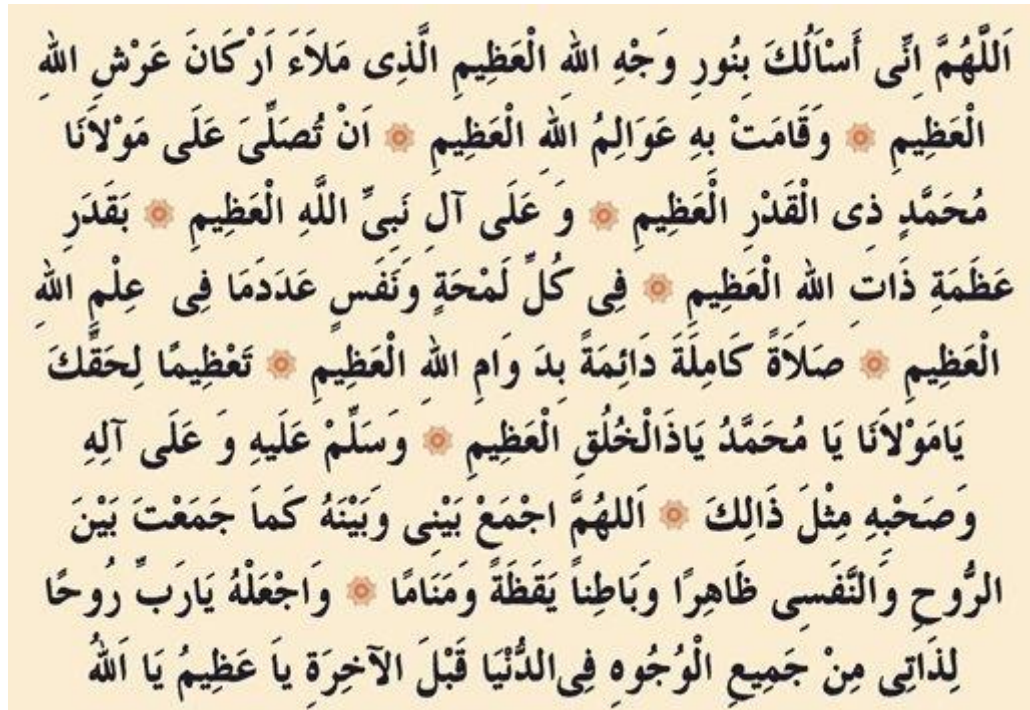 اَللَّهُمَّ اِنِّى أَسْاَلُكَ بِنُورِ وَجْهِ اللهِ الْعَظِيمِ الَّذِى مَلَاَءَ اَرْكَانَ عَرْشِ اللهِ
الْعَظِيمِ ۞ وَقَامَتْ بِهِ عَوَالِمُ اللهِ الْعَظِيمِ ۞ اَنْ تُصَلِّىَ عَلَى مَوْلَانَا
مُحَمَّدٍ ذِى الْقَدْرِ الْعَظِيمِ ۞ وَ عَلَى آلِ نَبِىِّ اللَّهِ الْعَظِيمِ ۞ بَقَدَرِ
عَظَمَةِ ذَاتِ اللهِ الْعَظِيمِ ۞ فِى كُلِّ لَمْحَةٍ وَنَفَسٍ عَدَدَمَا فِى عِلْمِ اللهِ
الْعَظِيمِ ۞ صَلَاةً كَامِلَةَ دَائِمَةً بِدَ وَامِ اللهِ الْعَظِيمِ ۞ تَعْظِيمًا لِحَقِّكَ
يَامَوْلَانَا يَا مُحَمَّدُ يَاذَالْخُلُقِ الْعَظِيمِ ۞ وَسَلِّمْ عَلَيهِ وَ عَلَى آلِهِ
وَصَحْبِهِ مِثْلَ ذَالِكَ ۞ اَللهُمَّ اجْمَعْ بَيْنِى وَبَيْنَهُ كَماَ جَمَعْتَ بَيْنَ
الرُّوحِ وَالنَّفَسِى ظَاهِرًا وَبَاطِناً يَقَظَةً وَمَنَامًا ۞ وَاجْعَلْهُ يَارَبِّ رُوحًا
لِذَاتِى مِنْ جَمِيعِ الْوُجُوهِ فِى الدُّنْيَا قَبْلَ الآخِرَةِ ياَ عَظِيمُ يَا اَللهُ